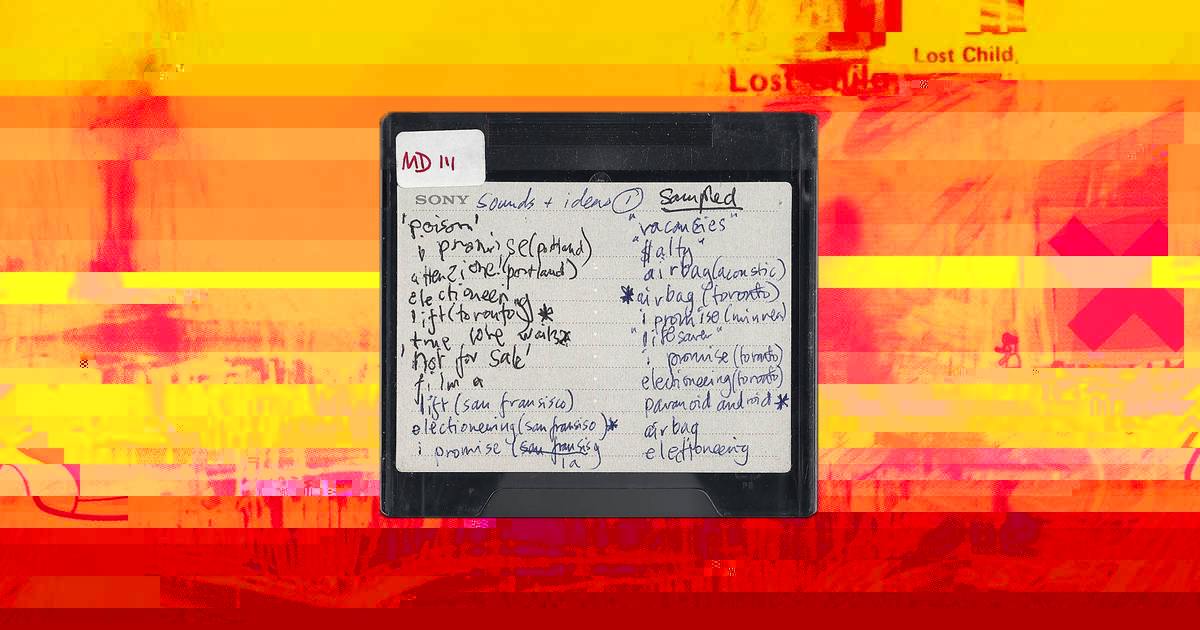 Lost Child
Lost Child
MD 111
SONY Sounds + ideas ① Sampled
'poison'
i promise (portland)
attenzione! (portland)
electioneering
lift (toronto) *
true love waits *
'Not for Sale'
lift (san fransisco)
electioneering (san fransisco) *
i promise (san fransis
la
"vacancies"
airbag (acoustic)
* airbag (toronto)
i promise
"lifesaver"
i promise (toronto)
electioneering (toronto)
paranoid android *
airbag
electioneering